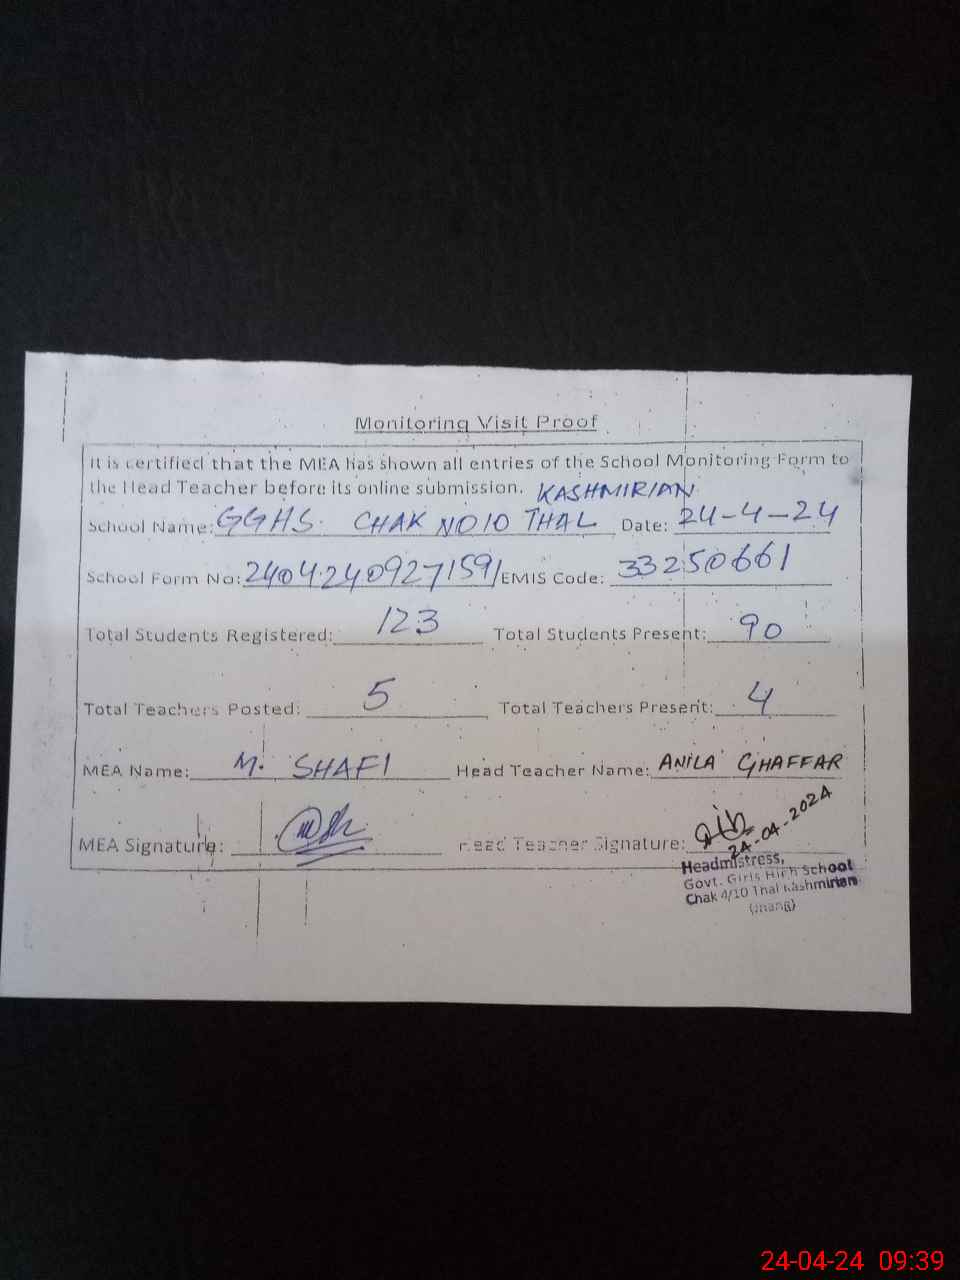 Monitoring Visit Proof
It is certified that the MEA has shown all entries of the School Monitoring Form to
the Head Teacher before its online submission. KASHMIRIAN
School Name: GGHS. CHAK NO 10 THAL Date: 24-4-24
School Form No: 2404240927159 EMIS Code: 33250661
Total Students Registered: 123 Total Students Present: 90
Total Teachers Posted: 5 Total Teachers Present: 4
MEA Name: M. SHAFI Head Teacher Name: ANILA GHAFFAR
MEA Signature: Head Teacher Signature:
24-04-2024
Headmistress,
Govt. Girls High School
Chak 4/10 Thal Kashmirian
(Jhang)
24-04-24 09:39